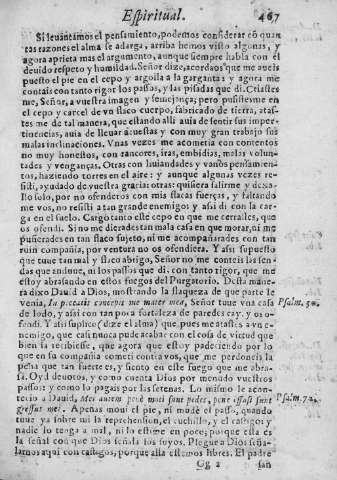 Espiritual. 467
Si leuantamos el pensamiento, podemos considerar cõ quan
tas razones el alma se adarga, arriba hemos visto algunas, y
agora aprieta mas el argumento, aunque siempre habla con el
deuido respeto y humildad. Señor dize, acordaos que me aueis
puesto el pie en el cepo y argolla a la garganta: y agora me
contais con tanto rigor los passos, y las pisadas que di. Criastes
me, Señor, a vuestra imagen y semejança; pero pusistesme en
el cepo y carcel de vn flaco cuerpo, fabricado de tierra, atas-
tes me de tal manera, que estando alli auia de sentir sus imper-
tinencias, auia de lleuar acuestas y con muy gran trabajo sus
malas inclinaciones. Vnas vezes me acometia con contentos
no muy honestos, con rancores, iras, embidias, malas volun-
tades y venganças. Otras con liuiandades y vanos pensamien-
tos, haziendo torres en el aire: y aunque algunas vezes re-
sisti, ayudado de vuestra gracia: otras quisiera salirme y dexa-
llo solo, por no ofenderos con mis flacas fuerças, y faltando
me vos, no resisti a tan grande enemigo: y assi di con la car-
ga en el suelo. Cargò tanto este cepo en que me cerrastes, que
os ofendi. Si no me dierades tan mala casa en que morar, ni me
pusierades en tan flaco sujeto, ni me acompañarades con tan
ruin compañia, por ventura no os ofendiera. Y assi supuesto
que tuue tan mal y flaco abrigo, Señor no me conteis las sen-
das que anduue, ni los passos que di. con tanto rigor, que me
estoy abrasando en estos fuegos del Purgatorio. Desta mane
ra dixo Dauid a Dios, mostrando la flaqueza de que parte le
venia, In peccatis concepit me mater mea, Señor tuue vna casa Psalm. 50.
de lodo, y assi con tan poca fortaleza de paredes cay, y os o-
fendi. Y assi suplico (dize el alma) que, pues me atastes a vn e-
nemigo, que casi nunca pude acabar con el cosa de virtud que
bien la recibiesse, que agora que estoy padeciendo por lo
que en su compañia cometi contra vos, que me perdoneis la
pena que tan fuerte es, y siento en este fuego que me abra-
sa. Oyd deuotos, y como cuenta Dios por menudo vuestros
passos: y como lo pagais por las setenas. Lo mismo le acon-
tecio a Dauid, Mei autem penè moti sunt pedes, penè effusi sunt Psalm. 72.
gressus mei. Apenas moui el pie, ni mudè el passo, quando
tuue ya sobre mi la reprehension, el cuchillo, y el castigo: y
nadie lo tenga a mal, ni lo estime en poco; porque essa es
la señal con que Dios señala los suyos. Plegue a Dios seña-
larnos aqui con castigos, porque alla estemos libres. El padre
Gg 2 san